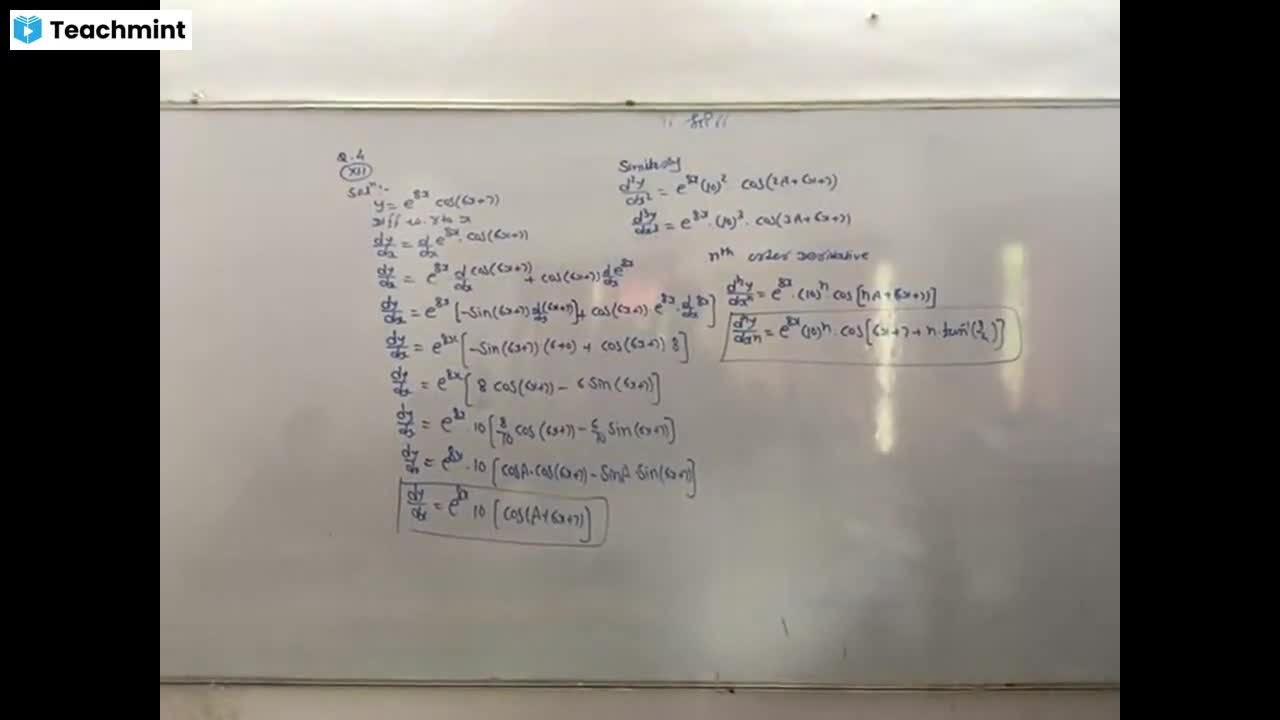 Teachmint
Q.4
(XII)
Solⁿ:-
y = e^8x cos(6x+7)
diff w.r.to x
dy/dx = d/dx e^8x · cos(6x+7)
dy/dx = e^8x d/dx cos(6x+7) + cos(6x+7) d/dx e^8x
dy/dx = e^8x [-sin(6x+7) d/dx (6x+7)] + cos(6x+7) · e^8x · d/dx 8x]
dy/dx = e^8x [-sin(6x+7) (6+0) + cos(6x+7) 8]
dy/dx = e^8x [8 cos(6x+7) - 6 sin(6x+7)]
dy/dx = e^8x · 10 [8/10 cos(6x+7) - 6/10 sin(6x+7)]
dy/dx = e^8x · 10 [cosA · cos(6x+7) - sinA · sin(6x+7)]
dy/dx = e^8x 10 [cos(A+6x+7)]
Similarly
d²y/dx² = e^8x (10)² · cos(2A+6x+7)
d³y/dx³ = e^8x · (10)³ · cos(3A+6x+7)
nth order derivative
dⁿy/dxⁿ = e^8x · (10)ⁿ · cos[nA+(6x+7)]
dⁿy/dxⁿ = e^8x (10)ⁿ · cos[6x+7+n · tan⁻¹(3/4)]